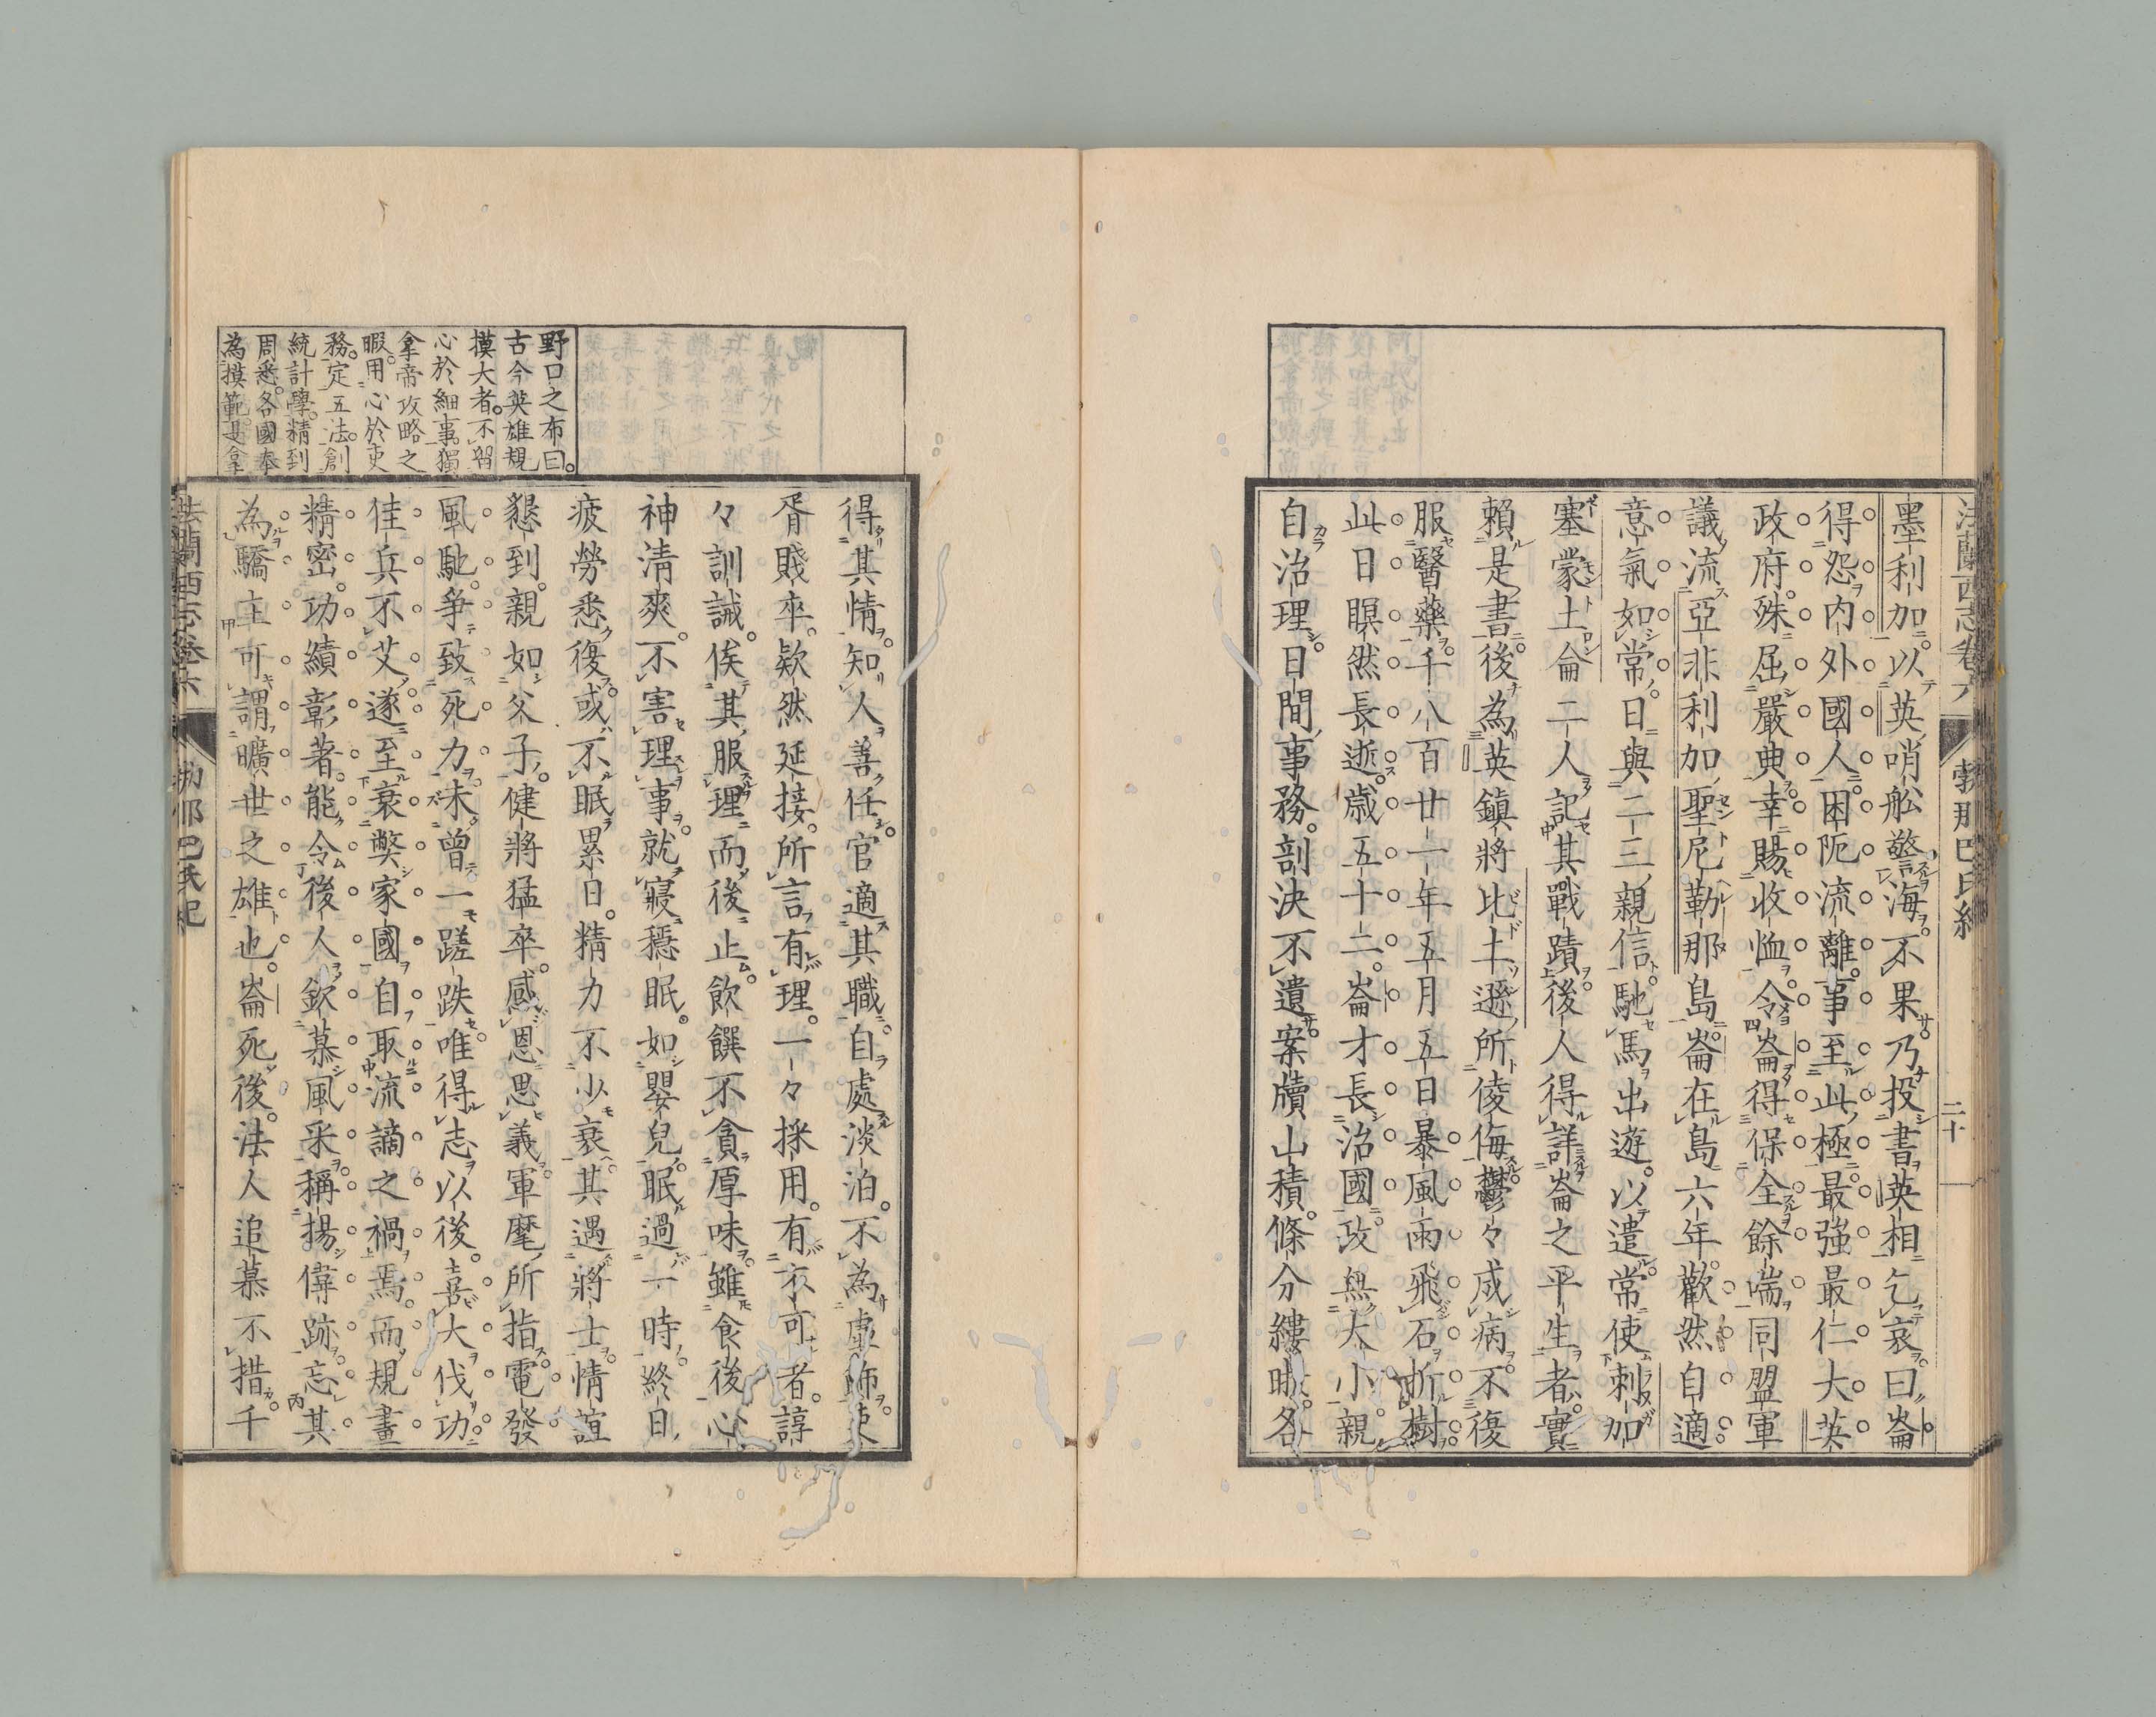 法蘭西志卷六 勃那巴氏紀 二十
墨利加以英哨舩警海不果乃投書英相乞哀曰崙
得怨内外國人困阨流離事至此極最強最仁大英
政府殊屈嚴典幸賜收恤令崙得保全餘喘同盟軍
議流亞非利加聖尼勒那島崙在島六年歡然自適
意氣如常日與二三親信馳馬出遊以遣常使刺加
塞蒙土侖二人記其戰蹟後人得詳崙之平生者實
賴是書後為英鎮將比土遜所倰侮鬱々成病不復
服醫藥千八百廿一年五月五日暴風雨飛石折樹
此日瞑然長逝歲五十二崙才長治國政無大小親
自治理日間事務剖決不遺案牘山積條分縷晰各
得其情知人善任官適其職自處淡泊不為虛飾吏
胥賤卒欵然延接所言有理一々採用有不可者諄
々訓誡俟其服理而後止飲饌不貪厚味雖食後心
神清爽不害理事就寢穩眠如嬰兒眠過一時終日
疲勞悉復或不眠累日精力不少衰其遇將士情誼
懇到親如父子健將猛卒感恩思義軍麾所指電發
風馳爭致死力未曾一蹉跌唯得志以後喜大伐功
佳兵不艾遂至衰獘家國自取流謫之禍焉而規畫
精密功績彰著能令後人欽慕風采稱揚偉跡忘其
為驕主可謂曠世之雄也崙死後法人追慕不措千
野口之布曰
古今英雄規
摸大者不留
心於細事獨
拿帝攻略之
暇用心於吏
務定五法創
統計學精到
周悉各國奉
為摸範是拿
法蘭西志卷六 勃那巴氏紀